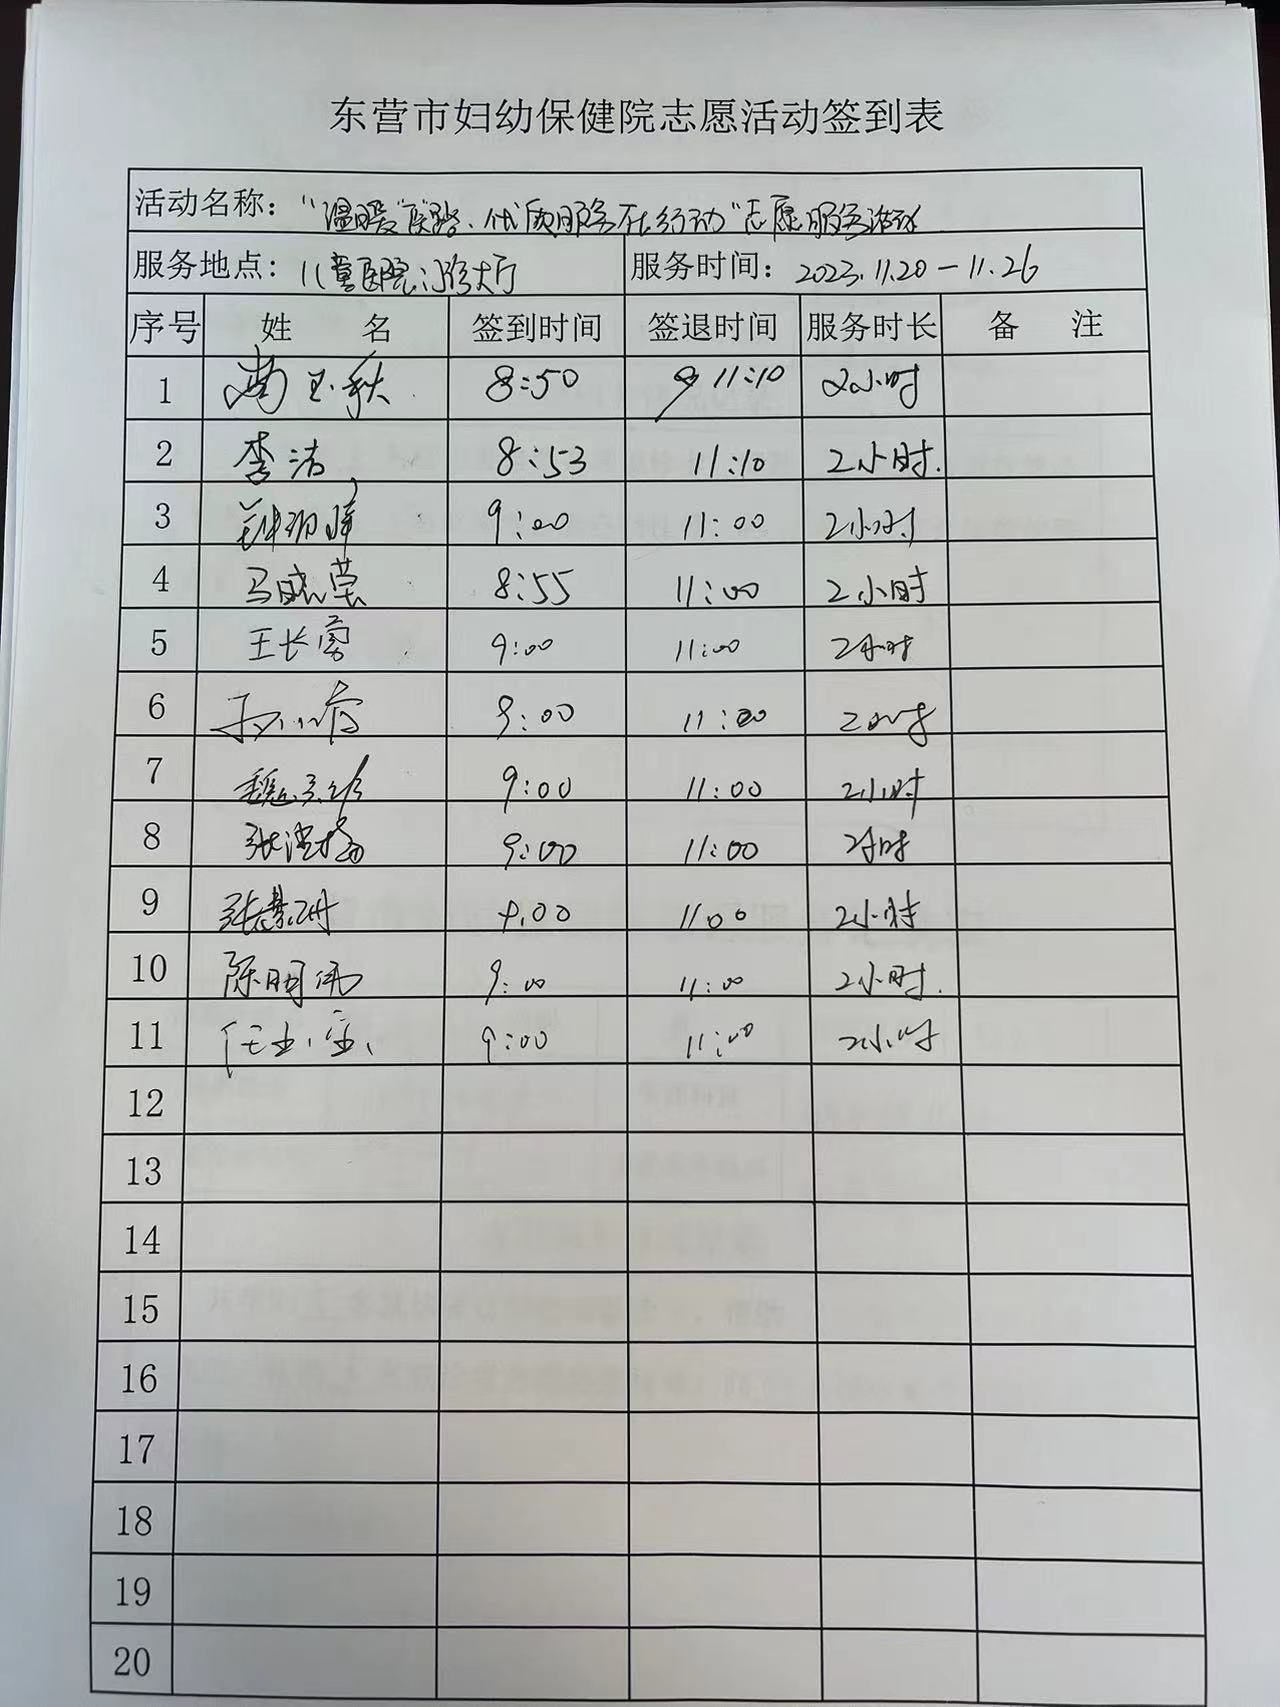 东营市妇幼保健院志愿活动签到表
活动名称：“温暖医路、优质服务在行动”志愿服务活动
服务地点：儿童医院门诊大厅 服务时间：2023.11.20-11.26
序号 姓 名 签到时间 签退时间 服务时长 备 注
1 玉秋 8:50 11:10 2小时
2 李洁 8:53 11:10 2小时.
3 9:00 11:00 2小时
4 马晓莹 8:55 11:00 2小时
5 王长勇 9:00 11:00 2小时
6 9:00 11:00 2小时
7 魏 9:00 11:00 2小时
8 张 9:00 11:00 2小时
9 张慧 9:00 11:00 2小时
10 陈明伟 9:00 11:00 2小时.
11 任 9:00 11:00 2小时
12
13
14
15
16
17
18
19
20